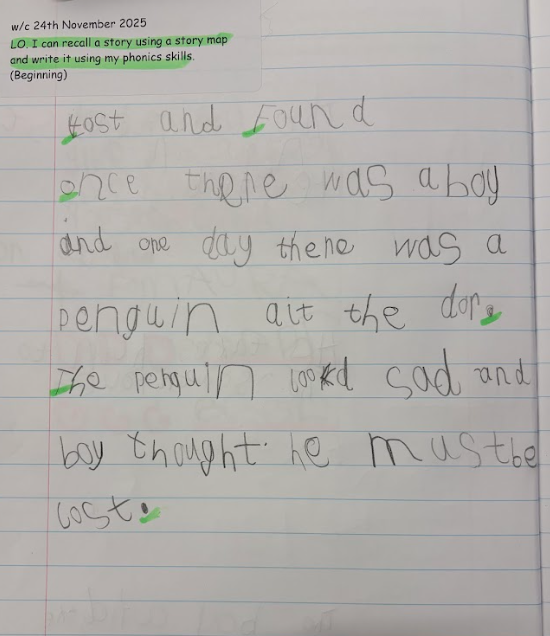 w/c 24th November 2025
LO. I can recall a story using a story map
and write it using my phonics skills.
(Beginning)
Lost and Found
once there was a boy
and one day there was a
penguin ait the dor.
The penguin lookd sad and
boy thought he must be
lost.